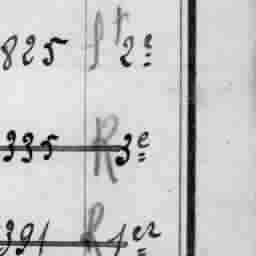 825 st 2e
335 R 3e
391 R 1er